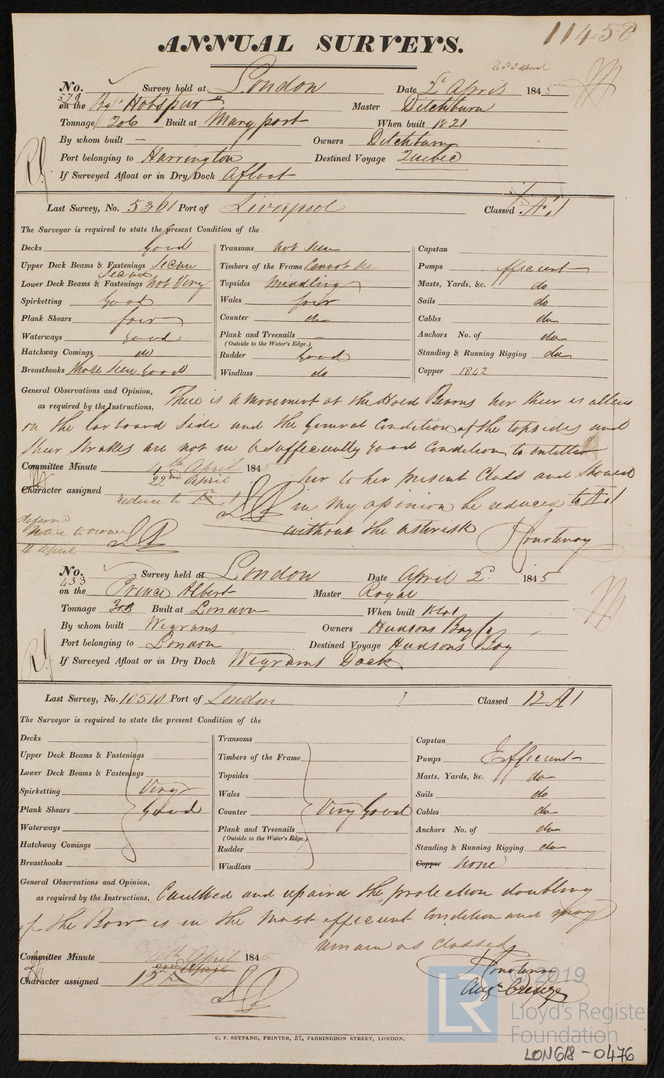 11458
ANNUAL SURVEYS.
No. 579 Survey held at London Date 2d April 1845
on the Bg. Hotspur Master Ditchburn
Tonnage 206 Built at Maryport When built 1821
By whom built — Owners Ditchburn
Port belonging to Harrington Destined Voyage Quebec
If Surveyed Afloat or in Dry Dock Afloat
Last Survey, No. 5361 Port of Liverpool Classed A1
The Surveyor is required to state the present Condition of the
Decks Good
Upper Deck Beams & Fastenings Secure
Lower Deck Beams & Fastenings Not Very Secure
Spirketting Good
Plank Shears fair
Waterways Good
Hatchway Comings do
Breasthooks those seen Good
Transoms not seen
Timbers of the Frame Cannot be
Topsides Middling
Wales fair
Counter do
Plank and Treenails
(Outside to the Water's Edge.)
Rudder Good
Windlass do
Capstan
Pumps Efficient
Masts, Yards, &c. do
Sails do
Cables do
Anchors No. of do
Standing & Running Rigging do
Copper 1842
General Observations and Opinion, There is a movement at the Hold Beams her sheer is
as required by the Instructions,
on the larboard side and the General Condition of the topsides and
sheer strakes are not in a sufficiently good Condition to entitle
her to her present Class and should
Committee Minute 4th April 1845
22nd April
Character assigned reduce to
in my opinion be reduced to A1
without the asterisk
Notice to owner
11 April
No. 433 Survey held at London Date April 2d 1845
on the Prince Albert Master Royal
Tonnage Built at London When built 1841
By whom built Wigrams Owners Hudsons Bay Co
Port belonging to London Destined Voyage Hudsons Bay
If Surveyed Afloat or in Dry Dock Wigrams Dock
Last Survey, No. 10510 Port of London Classed 12 A1
The Surveyor is required to state the present Condition of the
Decks
Upper Deck Beams & Fastenings
Lower Deck Beams & Fastenings
Spirketting Very
Plank Shears Good
Waterways
Hatchway Comings
Breasthooks
Transoms
Timbers of the Frame
Topsides
Wales
Counter Very Good
Plank and Treenails
(Outside to the Water's Edge.)
Rudder
Windlass
Capstan
Pumps Efficient
Masts, Yards, &c. do
Sails do
Cables do
Anchors No. of do
Standing & Running Rigging do
Copper None
General Observations and Opinion, Caulked and repaired the protection doubling
as required by the Instructions,
of the Bow is in the most efficient Condition and may
remain as classed
Committee Minute 4th April 1845
Character assigned 12 A
Augn Creuze
C. F. SEYFANG, PRINTER, 57, FARRINGDON STREET, LONDON.
© 2019
LR
Lloyd's Register
Foundation
LON618-0476